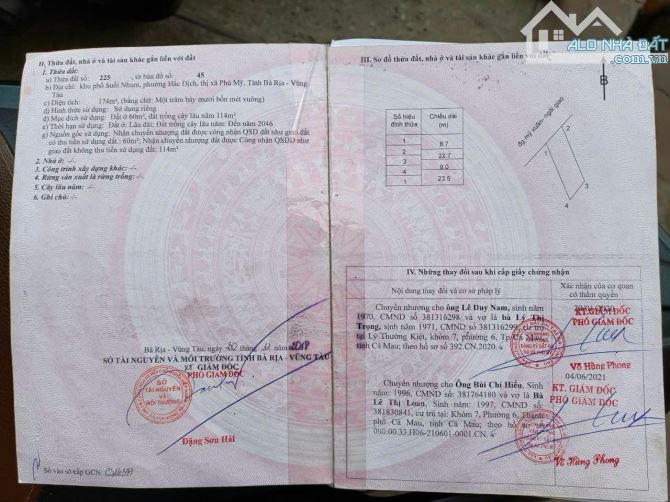 ALO NHÀ ĐẤT
II. Thửa đất, nhà ở và tài sản khác gắn liền với đất
1. Thửa đất:
a) Thửa đất số: 225, tờ bản đồ số: 45
b) Địa chỉ: khu phố Suối Nhum, phường Hắc Dịch, thị xã Phú Mỹ, Tỉnh Bà Rịa - Vũng
Tàu
c) Diện tích: 174m², (bằng chữ: Một trăm bảy mươi bốn mét vuông)
d) Hình thức sử dụng: Sử dụng riêng
đ) Mục đích sử dụng: Đất ở 60m², đất trồng cây lâu năm 114m²
e) Thời hạn sử dụng: Đất ở: Lâu dài; Đất trồng cây lâu năm: Đến năm 2046
g) Nguồn gốc sử dụng: Nhận chuyển nhượng đất được công nhận QSD đất như giao đất
có thu tiền sử dụng đất: 60m²; Nhận chuyển nhượng đất được Công nhận QSDĐ như
giao đất không thu tiền sử dụng đất: 114m²
2. Nhà ở: -/-
3. Công trình xây dựng khác: -/-
4. Rừng sản xuất là rừng trồng: -/-
5. Cây lâu năm: -/-
6. Ghi chú: -/-
Bà Rịa - Vũng Tàu, ngày 20 tháng 11
SỞ TÀI NGUYÊN VÀ MÔI TRƯỜNG TỈNH BÀ RỊA - VŨNG TÀU
GIÁM ĐỐC
PHÓ GIÁM ĐỐC
SỞ
TÀI NGUYÊN
VÀ
MÔI TRƯỜNG
Đặng Sơn Hải
Số vào sổ cấp GCN:
III. Sơ đồ thửa đất, nhà ở và tài sản khác gắn liền với đất
B
Số hiệu
đỉnh thửa
Chiều dài
(m)
1
8.7
2
22.7
3
9.0
4
23.5
1
đg mỹ xuân- ngãi giao
1
2
3
4
IV. Những thay đổi sau khi cấp giấy chứng nhận
Nội dung thay đổi và cơ sở pháp lý
Xác nhận của cơ quan
có thẩm quyền
Chuyển nhượng cho ông Lê Duy Nam, sinh năm
1970, CMND số 381316298 và vợ là bà Lý Thị
Trọng, sinh năm 1971, CMND số 381316299, cư trú
tại Lý Thường Kiệt, khóm 7, phường 6, Tp.Cà Mau,
tỉnh Cà Mau; theo hồ sơ số 392.CN.2020.
KT.GIÁM ĐỐC
PHÓ GIÁM ĐỐC
Võ Hùng Phong
04/06/2021
Chuyển nhượng cho Ông Bùi Chí Hiếu, Sinh
năm: 1996, CMND số: 381764180 và vợ là Bà
Lê Thị Loan, Sinh năm: 1997, CMND số:
381830841, cư trú tại: Khóm 7, Phường 6, Thành
phố Cà Mau, tỉnh Cà Mau; theo hồ sơ số
000.00.33.H06-210601-0001.CN.
KT. GIÁM ĐỐC
PHÓ GIÁM ĐỐC
Võ Hùng Phong